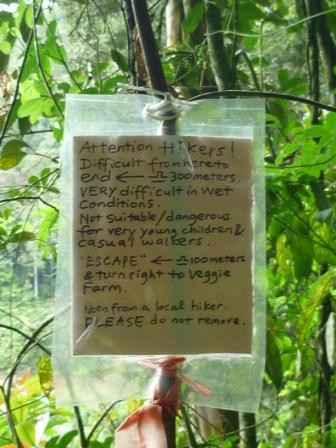 Attention Hikers!
Difficult from here to
end ← 300meters.
VERY difficult in wet
Conditions.
Not suitable/dangerous
for very young children &
casual walkers.
"ESCAPE" ← 100meters
& turn right to Veggie
Farm.
Note from a local hiker.
PLEASE do not remove.